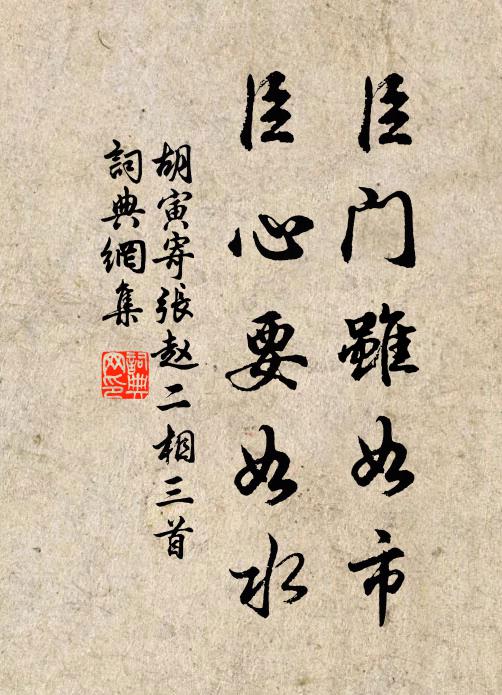 臣门雖如市
臣心要如水
胡寅寄張赵二相三首
詞典網集
詞典网印